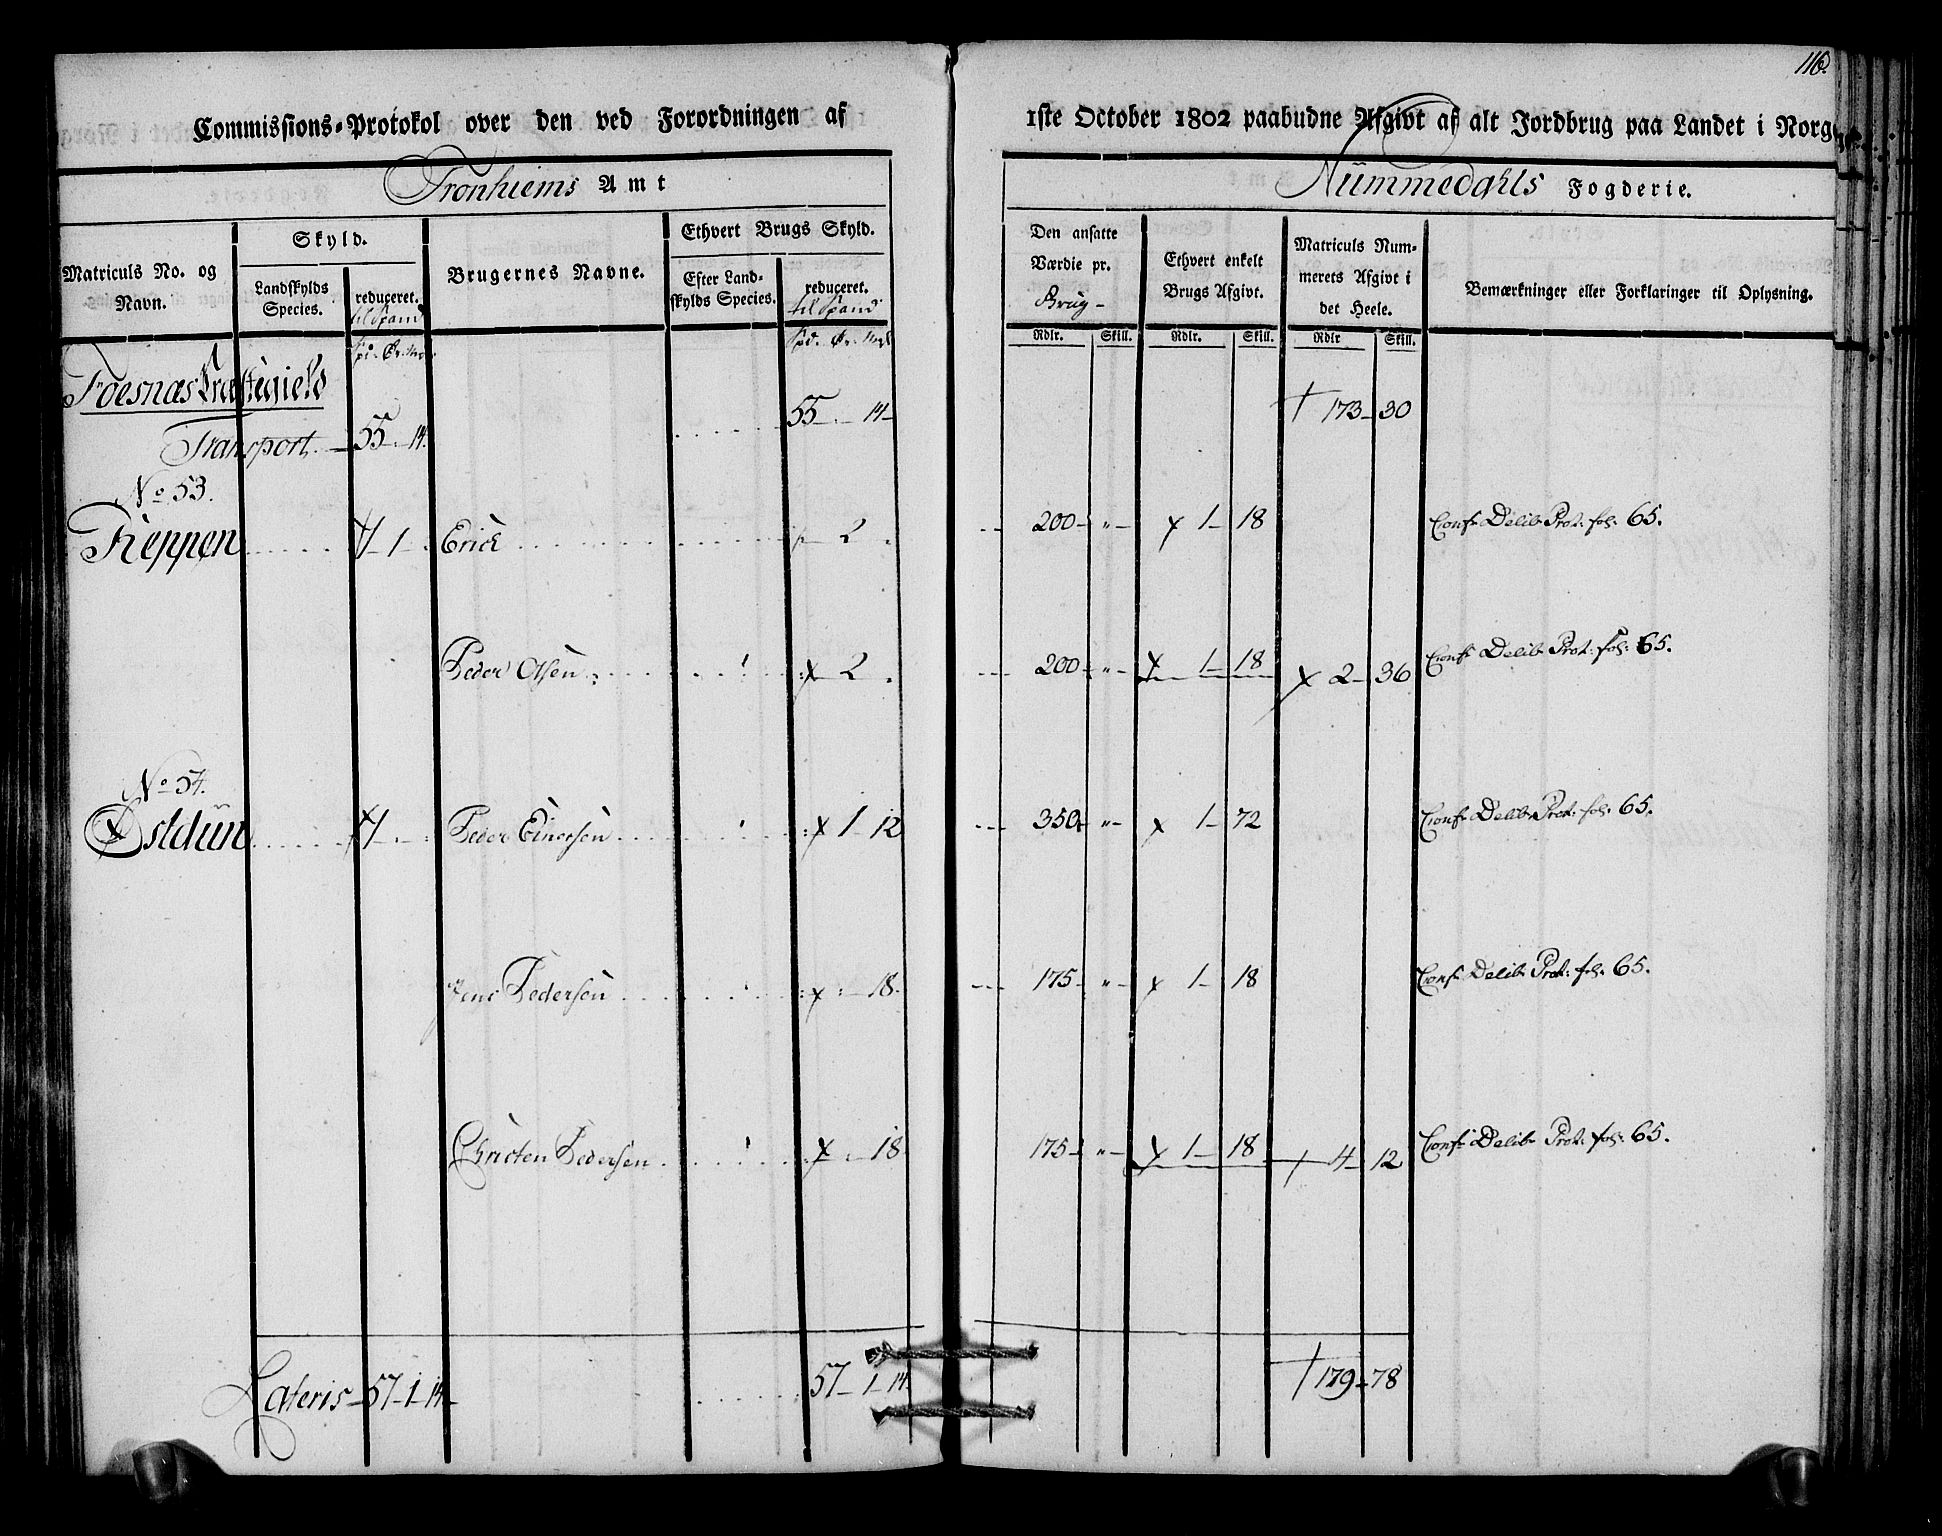 116.
Commissions-Protokol over den ved Forordningen af 1ste October 1802 paabudne Afgivt af alt Jordbrug paa Landet i Norge
Tronhiems Amt
Nummedahls Fogderie.
Matriculs No. og Navn.
Skyld.
Landskylds Species.
reduceret. til Spand
Brugernes Navne.
Ethvert Brugs Skyld.
Efter Landskylds Species.
reduceret. til Spand
Den ansatte Værdie pr. Brug
Ethvert enkelt Brugs Afgivt.
Matriculs Nummerets Afgivt i det Heele.
Bemærkninger eller Forklaringer til Oplysning.
Rdlr. Skill. Rdlr. Skill. Rdlr Skill.
Foesnæs Præstegield
Transport. 55 - 14. 55 - 14 173 - 30
No 53.
Reppen 1 - 1 Erick 2 200 - " - 1 - 18 Conf. Delib. Prot: fol: 65.
Peder Olsen 2 200 - " - 1 - 18 2 - 36 Conf. Delib. Prot: fol: 65.
No 54.
Østduun 1 Peder Einersen 1 - 12 350 - " - 1 - 72 Conf. Delib. Prot: fol: 65.
Jens Pedersen 18 175 - " - 1 - 18 Conf. Delib. Prot: fol: 65.
Christen Pedersen 18 175 - " - 1 - 18 4 - 12 Conf. Delib. Prot: fol: 65.
Lateris - 57 - 1 - 14 57 - 1 - 14. 179 - 78